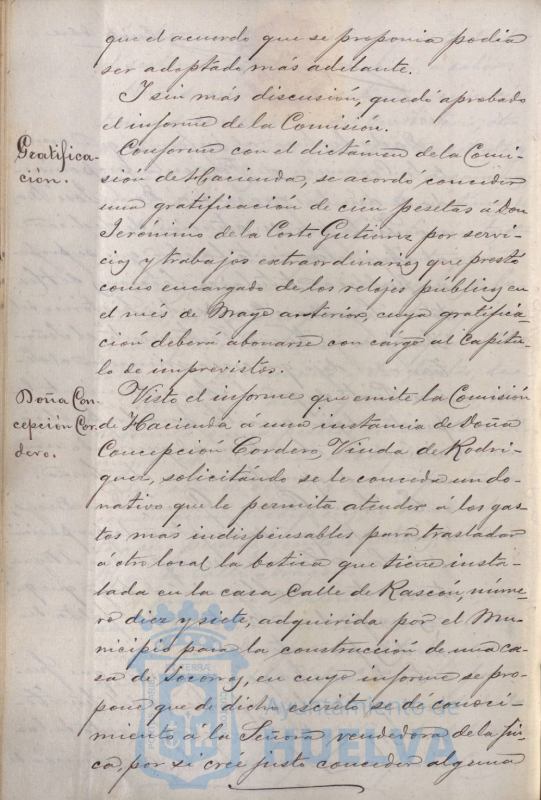 que el acuerdo que se proponia podia
ser adoptado más adelante.
Y sin más discusión, quedó aprobado
el informe de la Comisión.
Gratifica-
ción.
Conforme con el dictámen de la Comi-
sión de Hacienda, se acordó conceder
una gratificación de cien pesetas á Don
Jerónimo de la Corte Gutierrez por servi-
cios y trabajos extraordinarios que prestó
como encargado de los relojes públicos en
el més de Mayo anterior, cuya gratifica-
ción deberá abonarse con cárgo al Capítu-
lo de imprevistos.
Doña Con-
cepción Cor-
dero.
Visto el informe que emite la Comisión
de Hacienda á una instancia de Doña
Concepción Cordero, Viuda de Rodri-
guez, solicitándo se le conceda un do-
nativo que le permita atender á los gas-
tos más indispensables para trasladar
á otro local la botica que tiene insta-
lada en la casa Calle de Rascón, núme-
ro diez y siete, adquirida por el Mu-
nicipio para la construcción de una ca-
sa de Socorros, en cuyo informe se pro-
pone que de dicho escrito se dé conoci-
miento á la Señora vendedora de la fin-
ca, por si crée justo conceder alguna
Ayuntamiento de
HUELVA